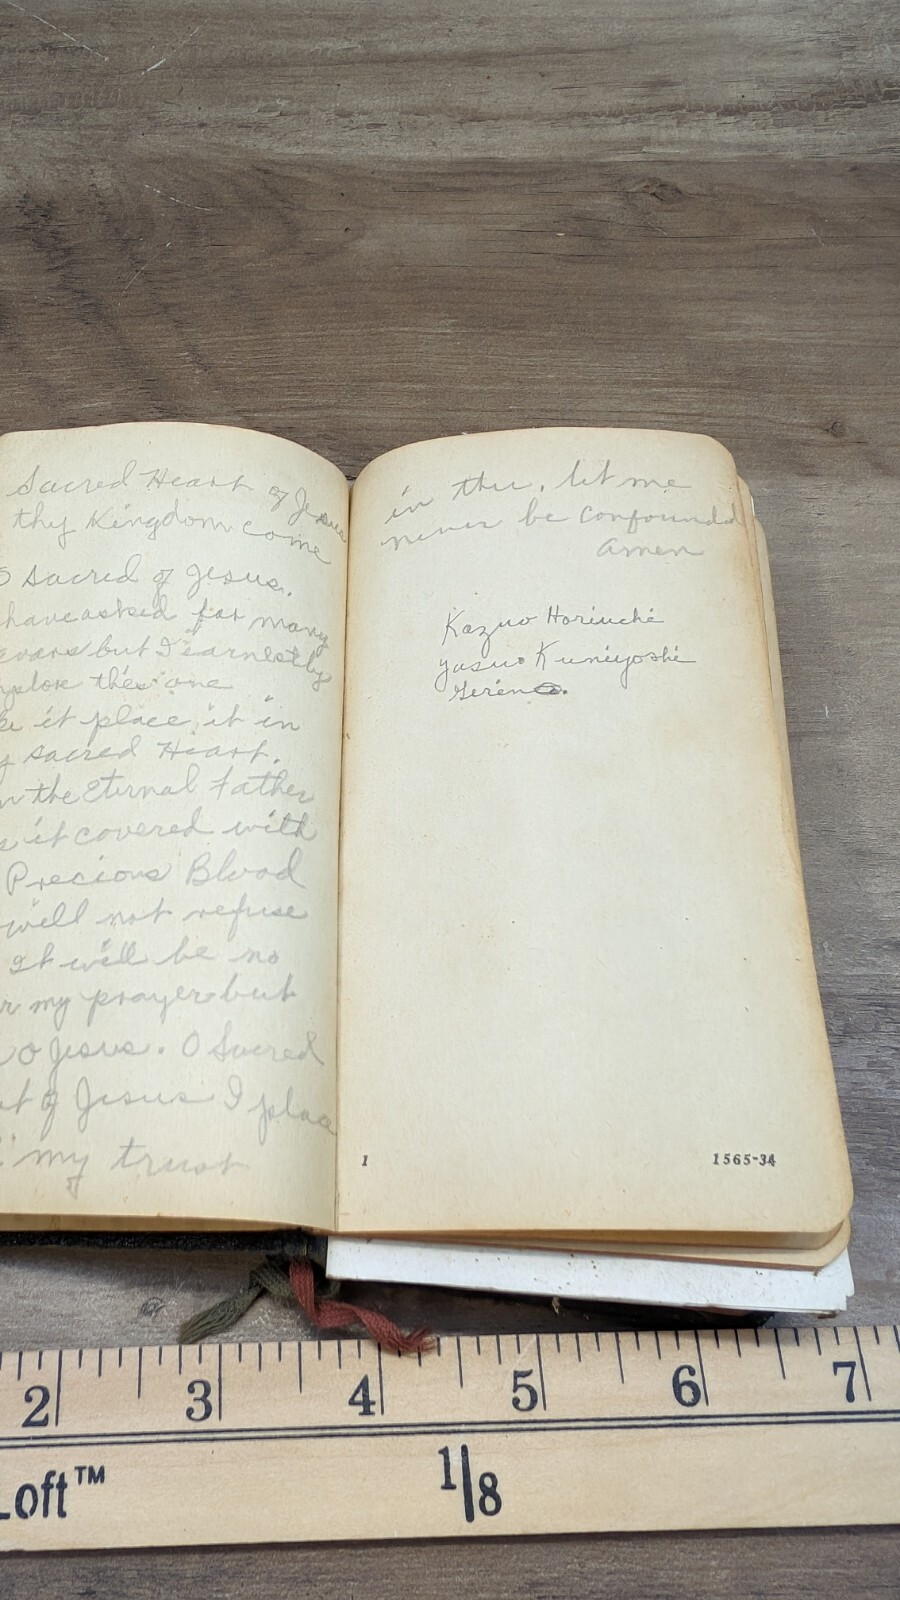 Sacred Heart of Jesus
thy Kingdom come
O Sacred of Jesus.
have asked for many
but I earnestly
this one
it place it in
sacred Heart.
the Eternal Father
it covered with
Precious Blood
will not refuse
It will be no
my prayer but
O Jesus. O Sacred
of Jesus I place
my trust
in thee, let me
never be confounded
amen
Kazuo Horiuchi
Yasuo Kuniyoshi
1
1565-34
2 3 4 5 6 7
Loft™
1/8